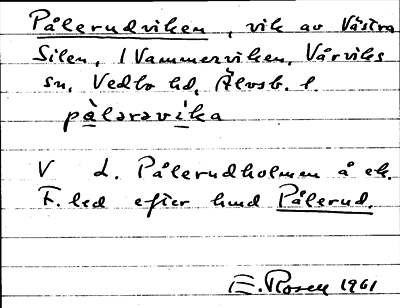 Pålerudviken, vik av Västra
Silen, i Vammerviken, Vårviks
sn, Vedbo hd, Älvsb. l.
pàlǝrǝvika
V d. Pålerudholmen å ek.
F. led efter hmd Pålerud.
E. Rosell 1961